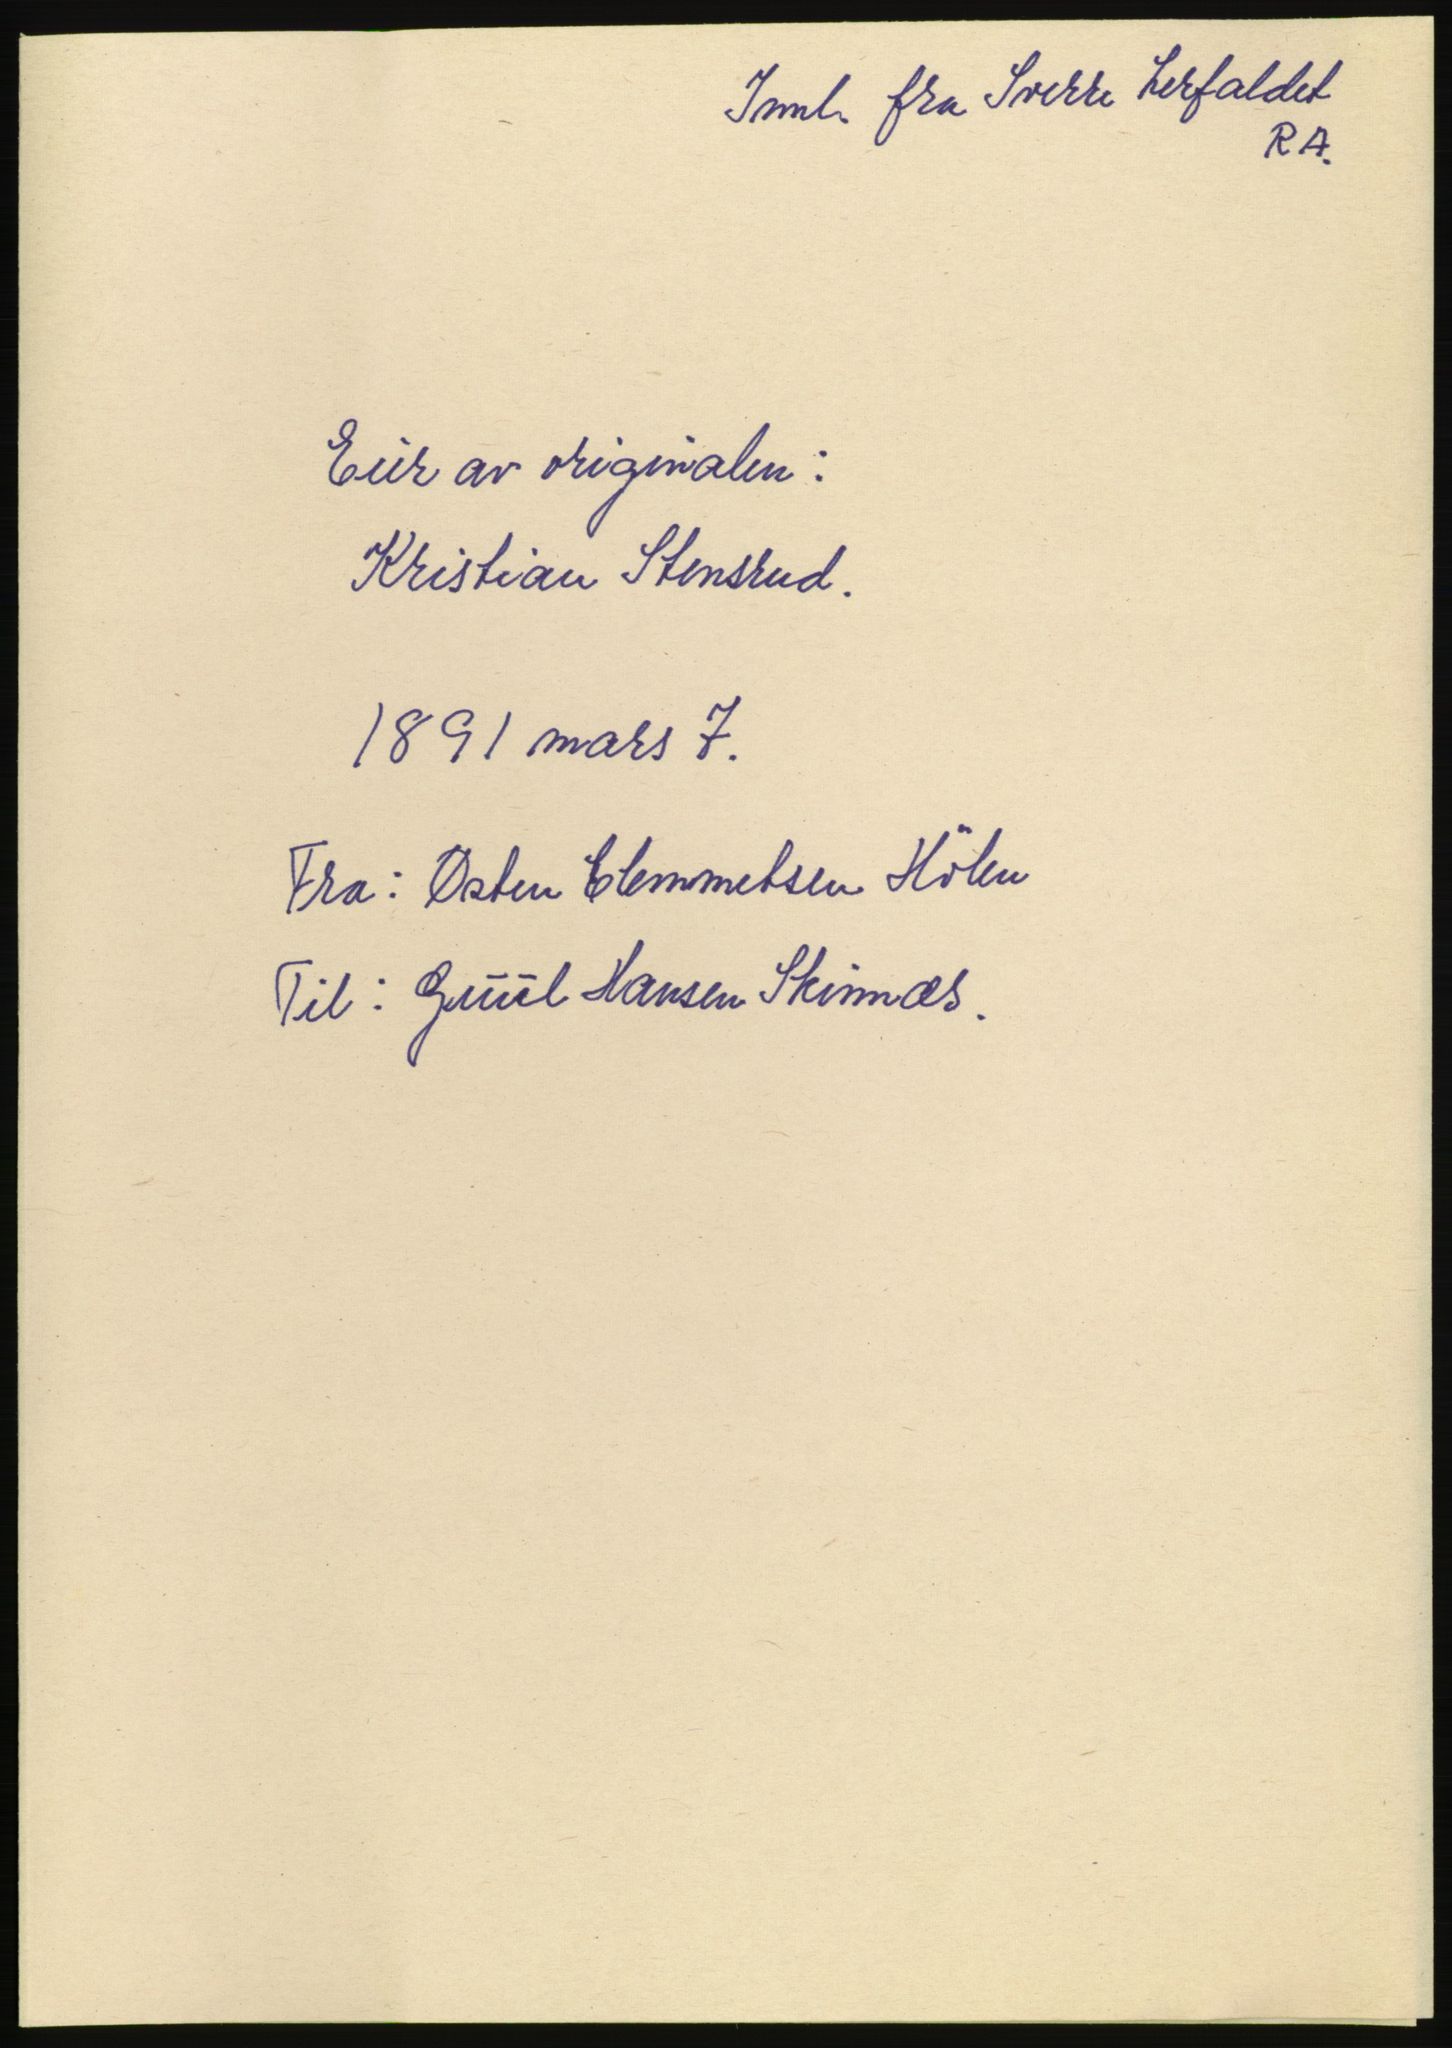 Innl. fra Sverre Lerfaldet
RA.
Eier av originalen:
Kristian Stensrud.
1891 mars 7.
Fra: Østen Clemmetsen Hölen
Til: Guul Hansen Skinnæs.